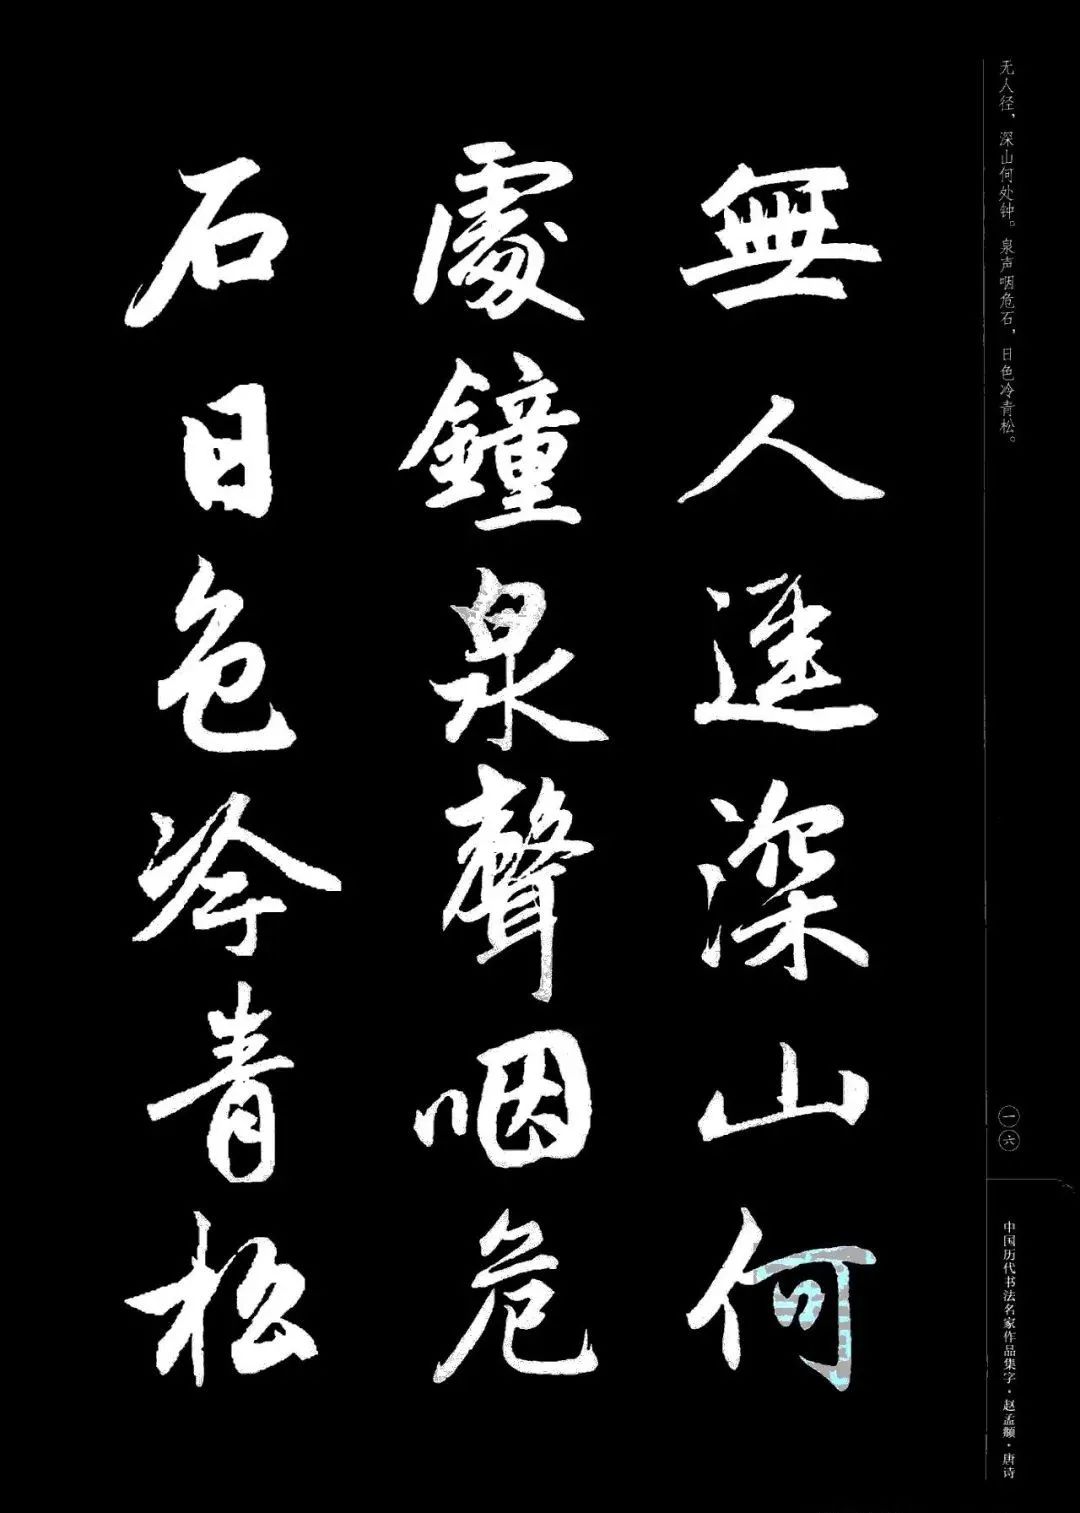 无人径，深山何处钟。泉声咽危石，日色冷青松。
一六
中国历代书法名家作品集字·赵孟頫·唐诗
無人迳深山何
處鐘泉聲咽危
石日色冷青松